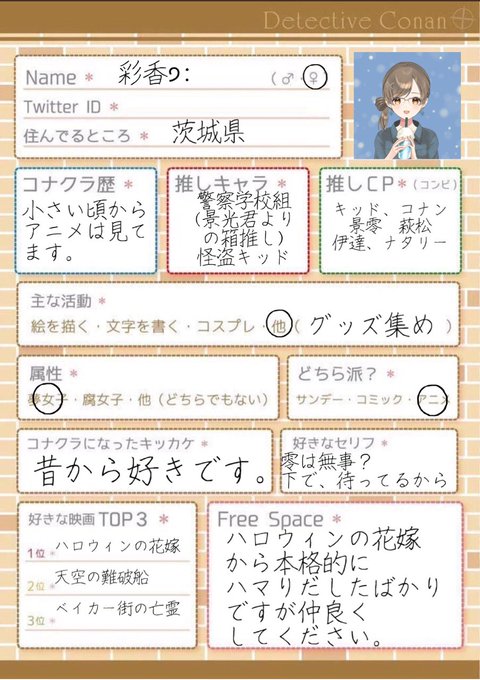 Detective Conan
Name * 彩香੭: (♂・♀)
Twitter ID *
住んでるところ * 茨城県
コナクラ歴 *
小さい頃から
アニメは見て
ます。
推しキャラ *
警察学校組
(景光君より
の箱推し)
怪盗キッド
推しCP * (コンビ)
キッド、コナン
景零 萩松
伊達、ナタリー
主な活動 *
絵を描く・文字を書く・コスプレ・他( グッズ集め )
属性 *
夢女子・腐女子・他(どちらでもない)
どちら派? *
サンデー・コミック・アニメ
コナクラになったキッカケ *
昔から好きです。
好きなセリフ *
零は無事?
下で、待ってるから
好きな映画 TOP3 *
1位 * ハロウィンの花嫁
2位 * 天空の難破船
3位 * ベイカー街の亡霊
Free Space *
ハロウィンの花嫁
から本格的に
ハマりだしたばかり
ですが仲良く
してください。